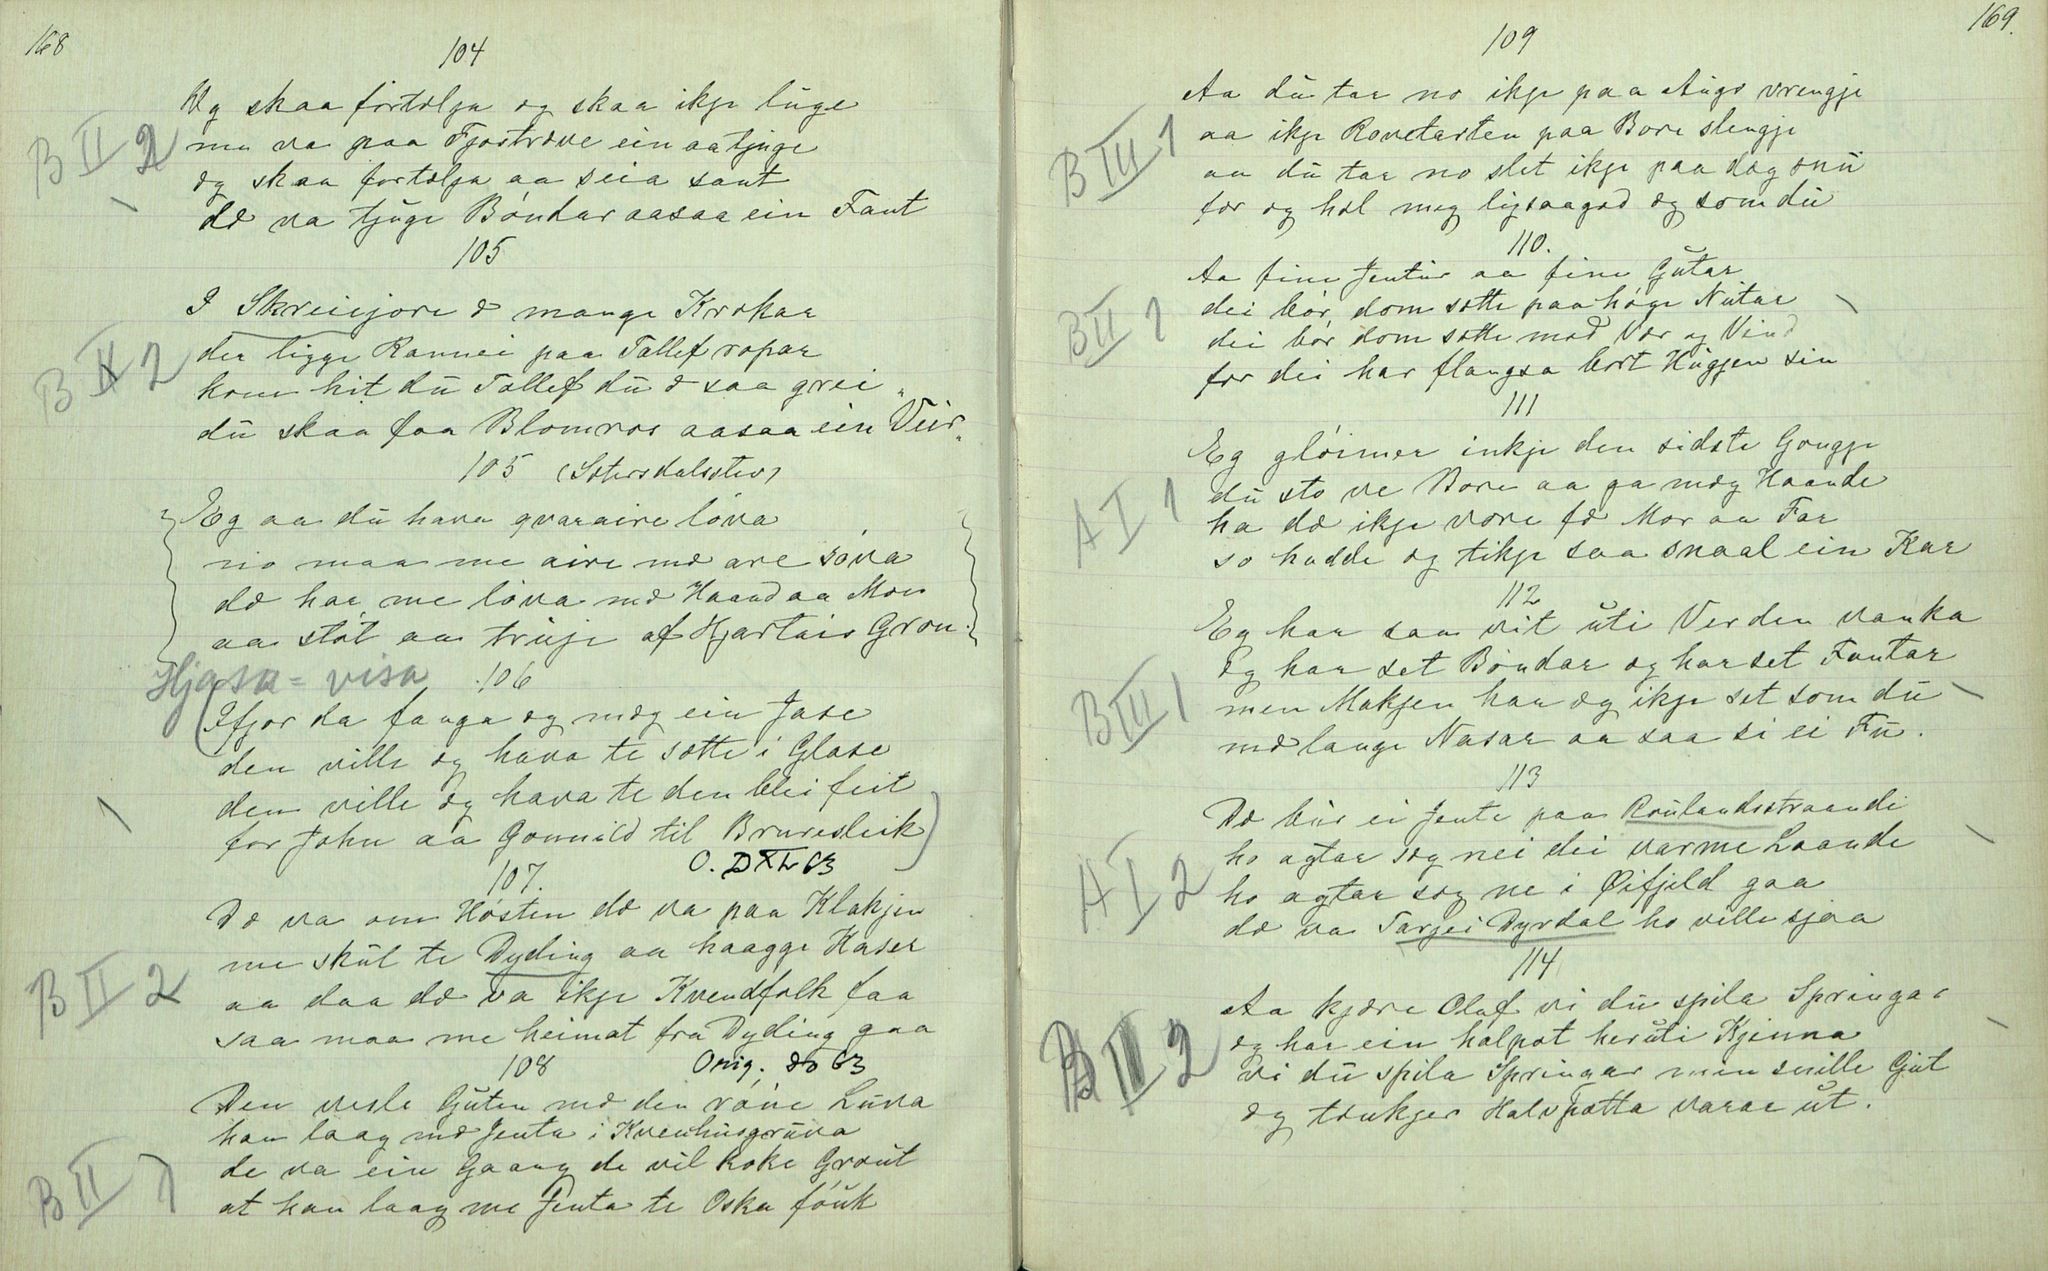 168
104
Eg skaa fortælja og skaa ikje luge
me va paa Fjostræve ein aa tjuge
eg skaa fortælja aa seia sant
dæ va tjuge Bóndar aasaa ein Fant
B II 2
105
I Skreiejore æ mange Krokar
der ligge Rannei paa Tallef ropar
kom hit du Tallef du æ saa grei
du skaa faa Blomros aasaa ein Veir
B II 2
105 (Sætersdalsstev)
Eg aa du hava qvaraire lóva
no maa me aire mæ are sóva
dæ har me lóva mæ Haand aa Mon
aa stót aa truje af Hjartais Gron.
Hjasa-visa
106
Ifjor da fanga eg mæg ein Jase
den ville eg hava te sætte i Glase
den ville eg hava te den blei feit
for John aa Gonnild til Bruresleik
O. D XL 63
107.
Dæ va om Hósten dæ va paa Klakjen
me skul te Dyding aa haagge Kaser
aa daa dæ va ikje Kvendfolk faa
saa maa me heimat fra Dyding gaa
B II 2
Orig. do 63
108
Den vesle Guten mæ den róúe Luva
han laag mæ Jenta i Kvenhusgruva
de va ein Gaang de vil koke Graut
at han laag me Jenta te Oska fóuk
B II 1
169.
109
Aa du tar no ikje paa Augo vrengje
aa ikje Rovetarten paa Bore slengje
aa du tar no slet ikje paa dæg snu
for eg hæl meg ligsaagod eg som du
B III 1
110.
Aa fine Jentur aa fine Gutar
dei bór dom sætte paa hóge Nutar
dei bór dom sætte mod Vær og Vind
for dei har flangsa bort Hugjen sin
B II 1
111
Eg glóimer inkje den sidste Gongje
du sto ve Bore aa ga mæg Haande
ha dæ ikje være fæ Mor aa Far
so hadde eg tikje saa snaal ein Kar
A I 1
112
Eg har saa vit uti Verden vanka
eg har set Bóndar og har set Fantar
men Makjen har eg ikje set som du
mæ lange Nasar aa saa si ei Fu.
B III 1
113
Dæ bur ei Jente paa Roulandsstraandi
ho agtar sæg nei dei varme Laande
ho agtar sæg ne i Øifjeld gaa
dæ va Targei Dyrdal ho ville sjaa
A I 2
114
Aa kjære Olaf vi du spila Springar
eg har ein halpot heruti Kjinna
vi du spila Springar min snille Gut
eg tænkjer Halvpotta varar ut.
B II 2